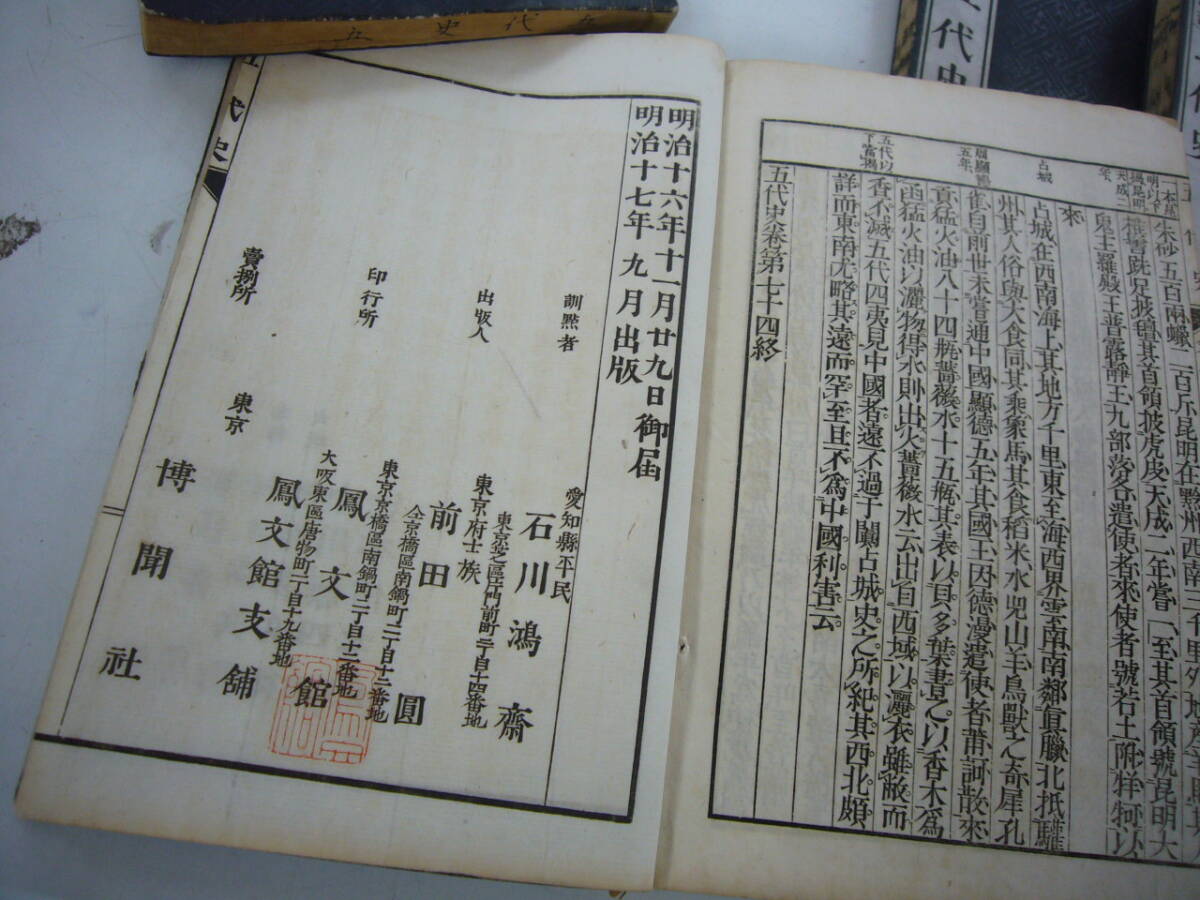 五代史
五代史
一本作
明以下
遇昆明
天成二
年
朱砂五百兩蠟二百斤昆明在黔州西南
椎髻跣足披氊其首領披虎皮天成二年嘗一至其首領號昆明大
鬼主羅殿王普露靜王九部落各遣使者來使者號若土附牂牁以
來
占城
占城在西南海上其地方千里東至海西界雲南南鄰眞臘北抵驩
州其人俗與大食同其乘象馬其食稻米水兕山羊鳥獸之奇犀孔
五年
雀自前世未嘗通中國顯德五年其國王因德漫遣使者莆訶散來
貢猛火油八十四瓶薔薇水十五瓶其表以貝多葉書之以香木爲
函猛火油以灑物得水則出火薔薇水云出自西域以灑衣雖敝而
五代以
下當揭
香不滅五代四夷見中國者遠不過于闐占城史之所紀其西北頗
詳而東南尤略其遠而罕至且不爲中國利害云
五代史卷第七十四終
明治十六年十一月廿九日御届
明治十七年九月出版
訓點者
愛知縣平民
石川鴻齋
東京芝區西門前町二丁目十四番地
出版人
東京府士族
前田圓
仝京橋區南鍋町二丁目十二番地
印行所
東京京橋區南鍋町二丁目十二番地
鳳文館
大阪東區唐物町二丁目十九番地
鳳文館支舖
賣捌所
東京
博聞社
五代史